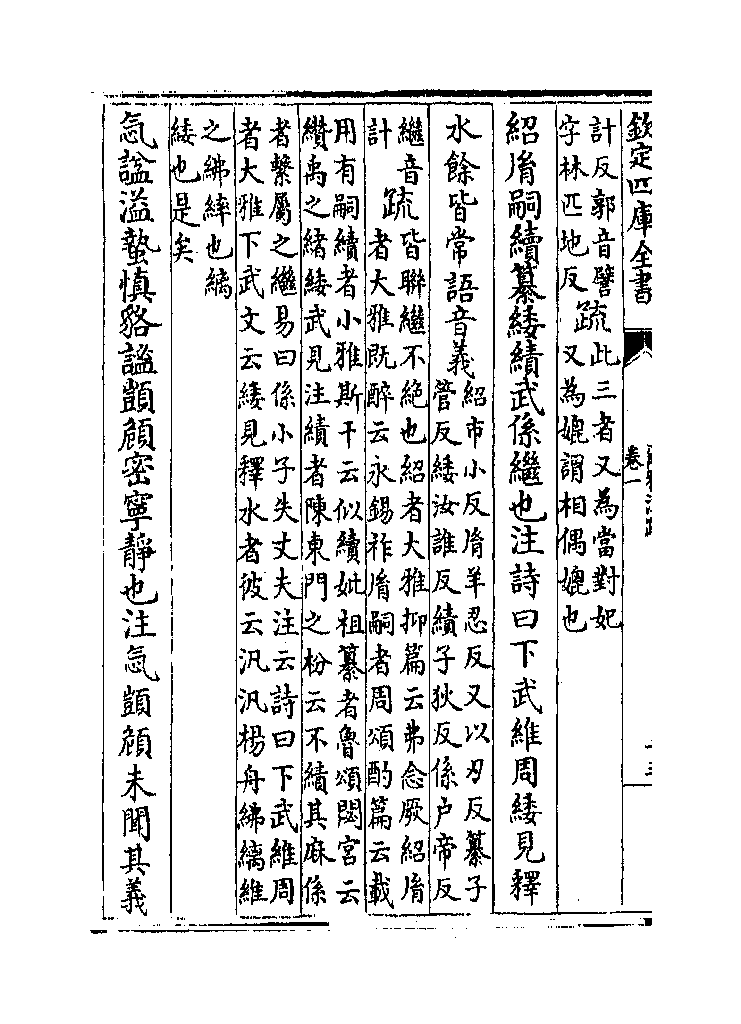 欽定四庫全書
卷一
計反郭音譬
字林匹地反
疏
此三者又為當對妃
又為媲謂相偶媲也
紹胤嗣續纂緌績武係繼也注詩曰下武維周緌見釋
水餘皆常語音義
紹市小反胤羊忍反又以刃反纂子
管反緌汝誰反績子狄反係户帝反
繼音
計
疏
皆聯繼不絶也紹者大雅抑篇云弗念厥紹胤
者大雅既醉云永錫祚胤嗣者周頌酌篇云載
用有嗣續者小雅斯干云似續妣祖纂者魯頌閟宫云
纘禹之緒緌武見注績者陳東門之枌云不績其麻係
者繫屬之繼易曰係小子失丈夫注云詩曰下武維周
者大雅下武文云緌見釋水者彼云汎汎楊舟紼縭維
之紼䋏也縭
緌也是矣
忥謐溢蟄慎貉謐顗頠密寧靜也注忥顗頠未聞其義